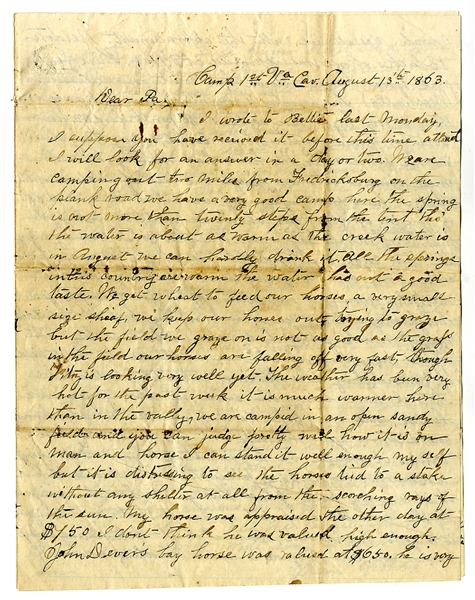 Camp 1st Va Cav. August 13th 1863.
Dear Pa.
I wrote to Bettie last Monday,
I suppose you have received it before this time at least
I will look for an answer in a day or two. We are
camping out two miles from Fredricksburg on the
plank road we have a very good camp here the spring
is not more than twenty steps from the tent tho
the water is about as warm as the creek water is
in August we can hardly drink it. All the springs
in this country are warm the water has not a good
taste. We get wheat to feed our horses, a very small
size sheaf, we keep our horses out trying to graze
but the field we graze on is not as good as the grass
in the field our horses are falling off very fast, though
Fitz is looking very well yet. The weather has bun very
hot for the past week it is much warmer here
than in the vally, we are camped in an open sandy
field and you can judge pretty well how it is on
man and horse I can stand it well enough my self
but it is distressing to see the horses tied to a stake
without any shelter at all from the scorching rays of
the sun. My horse was appraised the other day at
$750 I dont think he was valued high enough.
John Devers bay horse was valued at $650. he is very